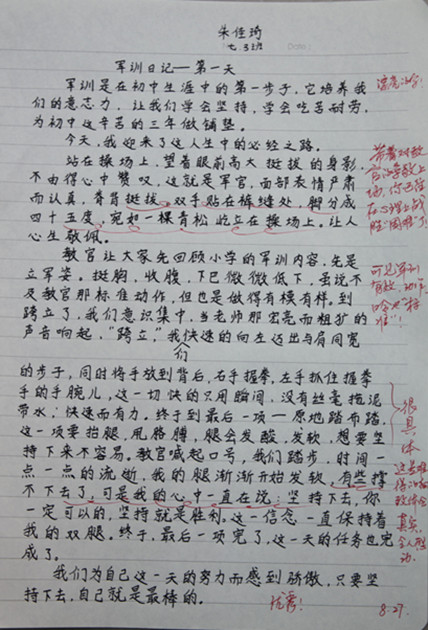 朱佳琦
七.3班
Date
军训日记—第一天
军训是在初中生涯中的第一步子，它培养我
们的意志力，让我们学会坚持，学会吃苦耐劳，
为初中这辛苦的三年做铺垫。
今天，我迎来了这人生中的必经之路。
站在操场上，望着眼前高大挺拔的身影，
不由得心中赞叹，这就是军官，面部表情严肃
而认真，脊背挺拔，双手贴在裤缝处，脚分成
四十五度，宛如一棵青松屹立在操场上。让人
心生敬佩。
教官让大家先回顾小学的军训内容，先是
立军姿。挺胸，收腹，下巴微微低下，虽说不
及教官那标准动作，但也是做得有模有样。到
跨立了，我们意识集中，当老师那宏亮而粗犷的
声音响起，“跨立，”我快速的向左迈出与肩同宽
们
的步子，同时将手放到背后，右手握拳，左手抓住握拳
手的手腕儿，这一切快的只用瞬间，没有丝毫拖泥
带水，快速而有力。终于到最后一项—原地踏布踏，
这一项要抬腿，甩胳膊，腿会发酸，发软，想要坚
持下来不容易。教官喊起口号，我们踏步，时间一
点一点的流逝，我的腿渐渐开始发软，有些撑
不下去了，可是我的心中一直在说：坚持下去，你
一定可以的，坚持就是胜利。这一信念一直保持着
我的双腿。终于，最后一项完了，这一天的任务也完
成了。
我们为自己这一天的努力而感到骄傲，只要坚
持下去，自己就是最棒的。
优秀！
8.27.
很具体
真实，令人感动。